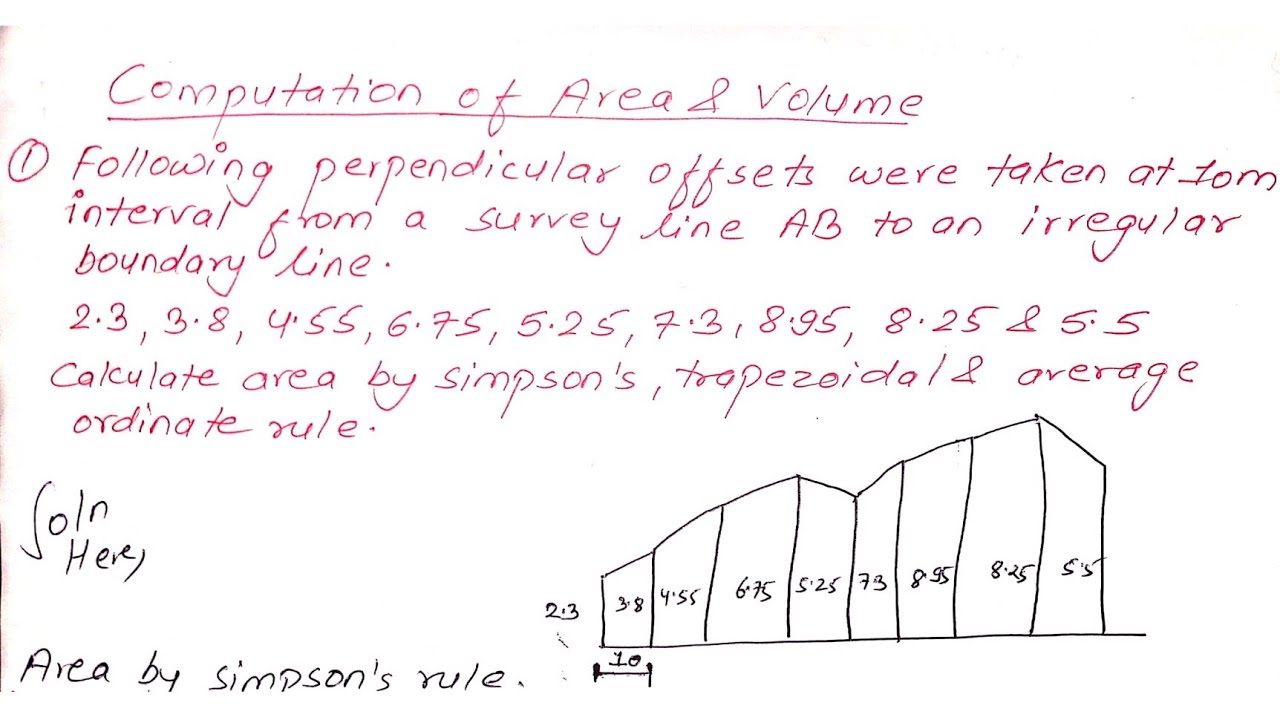 Computation of Area & Volume
① Following perpendicular offsets were taken at 10m
interval from a survey line AB to an irregular
boundary line.
2.3, 3.8, 4.55, 6.75, 5.25, 7.3, 8.95, 8.25 & 5.5
Calculate area by simpson's, trapezoidal & average
ordinate rule.
Soln
Here,
2.3 3.8 4.55 6.75 5.25 73 8.95 8.25 5.5
10
Area by simpson's rule.